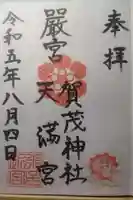 奉拝
賀茂神社
嚴宮天満宮
令和五年八月四日